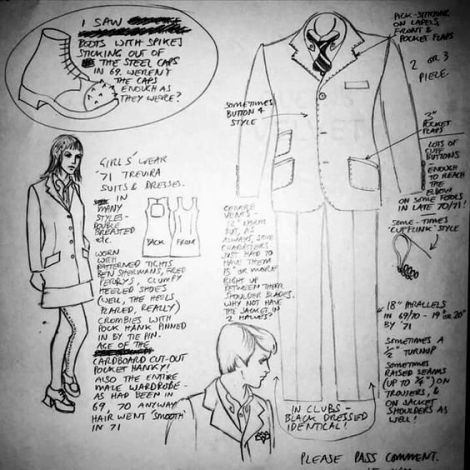 I SAW
BOOTS WITH SPIKES
STICKING OUT OF
THE STEEL CAPS
IN 69. WEREN'T
THE CAPS
ENOUGH AS
THEY WERE?
GIRLS' WEAR
'71 TREVIRA
SUITS & DRESSES.
IN
MANY
STYLES -
DOUBLE
BREASTED
etc.
WORN
WITH
PATTERNED TIGHTS
BEN SHERMANS, FRED
PERRYS, CLUMPY
HEELED SHOES
(WELL, THE HEELS
FLARED, REALLY)
CROMBIES WITH
POCK HANK PINNED
IN BY TIE PIN.
AGE OF THE
CARDBOARD CUT-OUT
POCKET HANKY!
ALSO THE ENTIRE
MALE WARDROBE -
AS HAD BEEN IN
69, 70 ANYWAY
HAIR WENT 'SMOOTH'
IN 71
BACK
FRONT
CENTRE
VENTS -
12" NORM
BUT, AS
ALWAYS, SOME
CHARACTERS
JUST HAD TO
HAVE THEM
18" OR MORE
RIGHT UP
BETWEEN THEIR
SHOULDER BLADES.
WHY NOT HAVE
THE JACKET IN
2 HALVES?
SOMETIMES
BUTTON 4
STYLE
PICK-STITCHING
ON LAPELS,
FRONT &
POCKET FLAPS
2 OR 3
PIECE
2"
POCKET
FLAPS
LOTS OF
CUFF
BUTTONS
ENOUGH
TO REACH
THE
ELBOW
ON SOME FOOLS
IN LATE 70/71!
SOME-TIMES
'CUFFLINK' STYLE
18" PARALLELS
IN 69/70 - 19" OR 20"
BY '71
SOMETIMES A
2" TURNUP
SOMETIMES
RAISED SEAMS
(UP TO ¾") ON
TROUSERS, &
ON JACKET
SHOULDERS AS
WELL!
IN CLUBS -
BLACK DRESSED
IDENTICAL!
PLEASE PASS COMMENT.